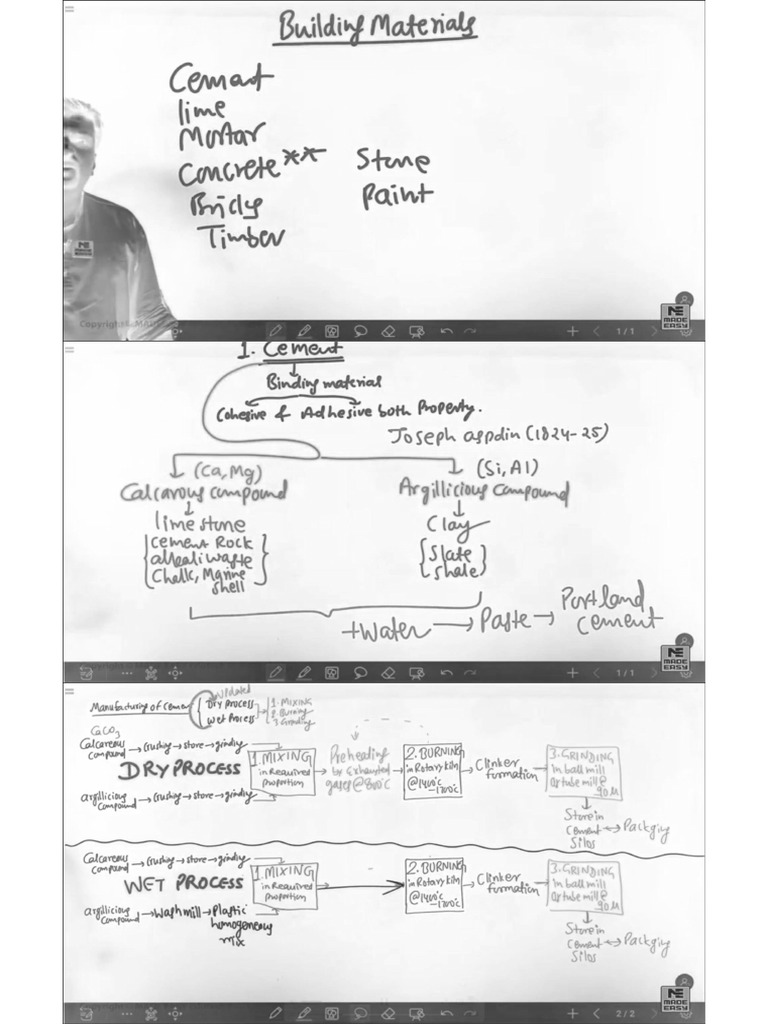 Building Materials
Cement
lime
Mortar
Concrete** Stone
Bricks Paint
Timber
NE
MADE EASY
1/1
1. Cement
Binding material
Cohesive & Adhesive both Property.
Joseph aspdin (1824-25)
(Ca, Mg) (Si, Al)
Calcarous compound Argillicious compound
lime stone Clay
Cement Rock Slate
alkali waste Shale
Chalk, Marine
shell
+Water → Paste → Portland
cement
NE
MADE EASY
1/1
Manufacturing of cement Dry Process 1. MIXING
Wet Process 2 Burning
3 Grinding
CaCO3
Calcareous compound → Crushing → store → grinding
DRY PROCESS
1. MIXING
in Required
proportion
Preheading
by Exhausted
gases @ 800°c
2. BURNING
in Rotary Kiln
@1400°c
–1700°c
Clinker
formation
3. GRINDING
in ball mill
or tube mill @
90 µ
argillicious compound → Crushing → store → grinding
Store in
cement ↔ Packging
Silos
Calcareous compound → Crushing → store → grinding
WET PROCESS
1. MIXING
in Required
Proportion
2. BURNING
in Rotary Kiln
@1400°c
–1700°c
Clinker
formation
3. GRINDING
in ball mill
or tube mill @
90 µ
argillicious compound → Wash mill → Plastic
homogeneous
mix
Store in
cement ↔ Packging
Silos
NE
MADE EASY
2/2